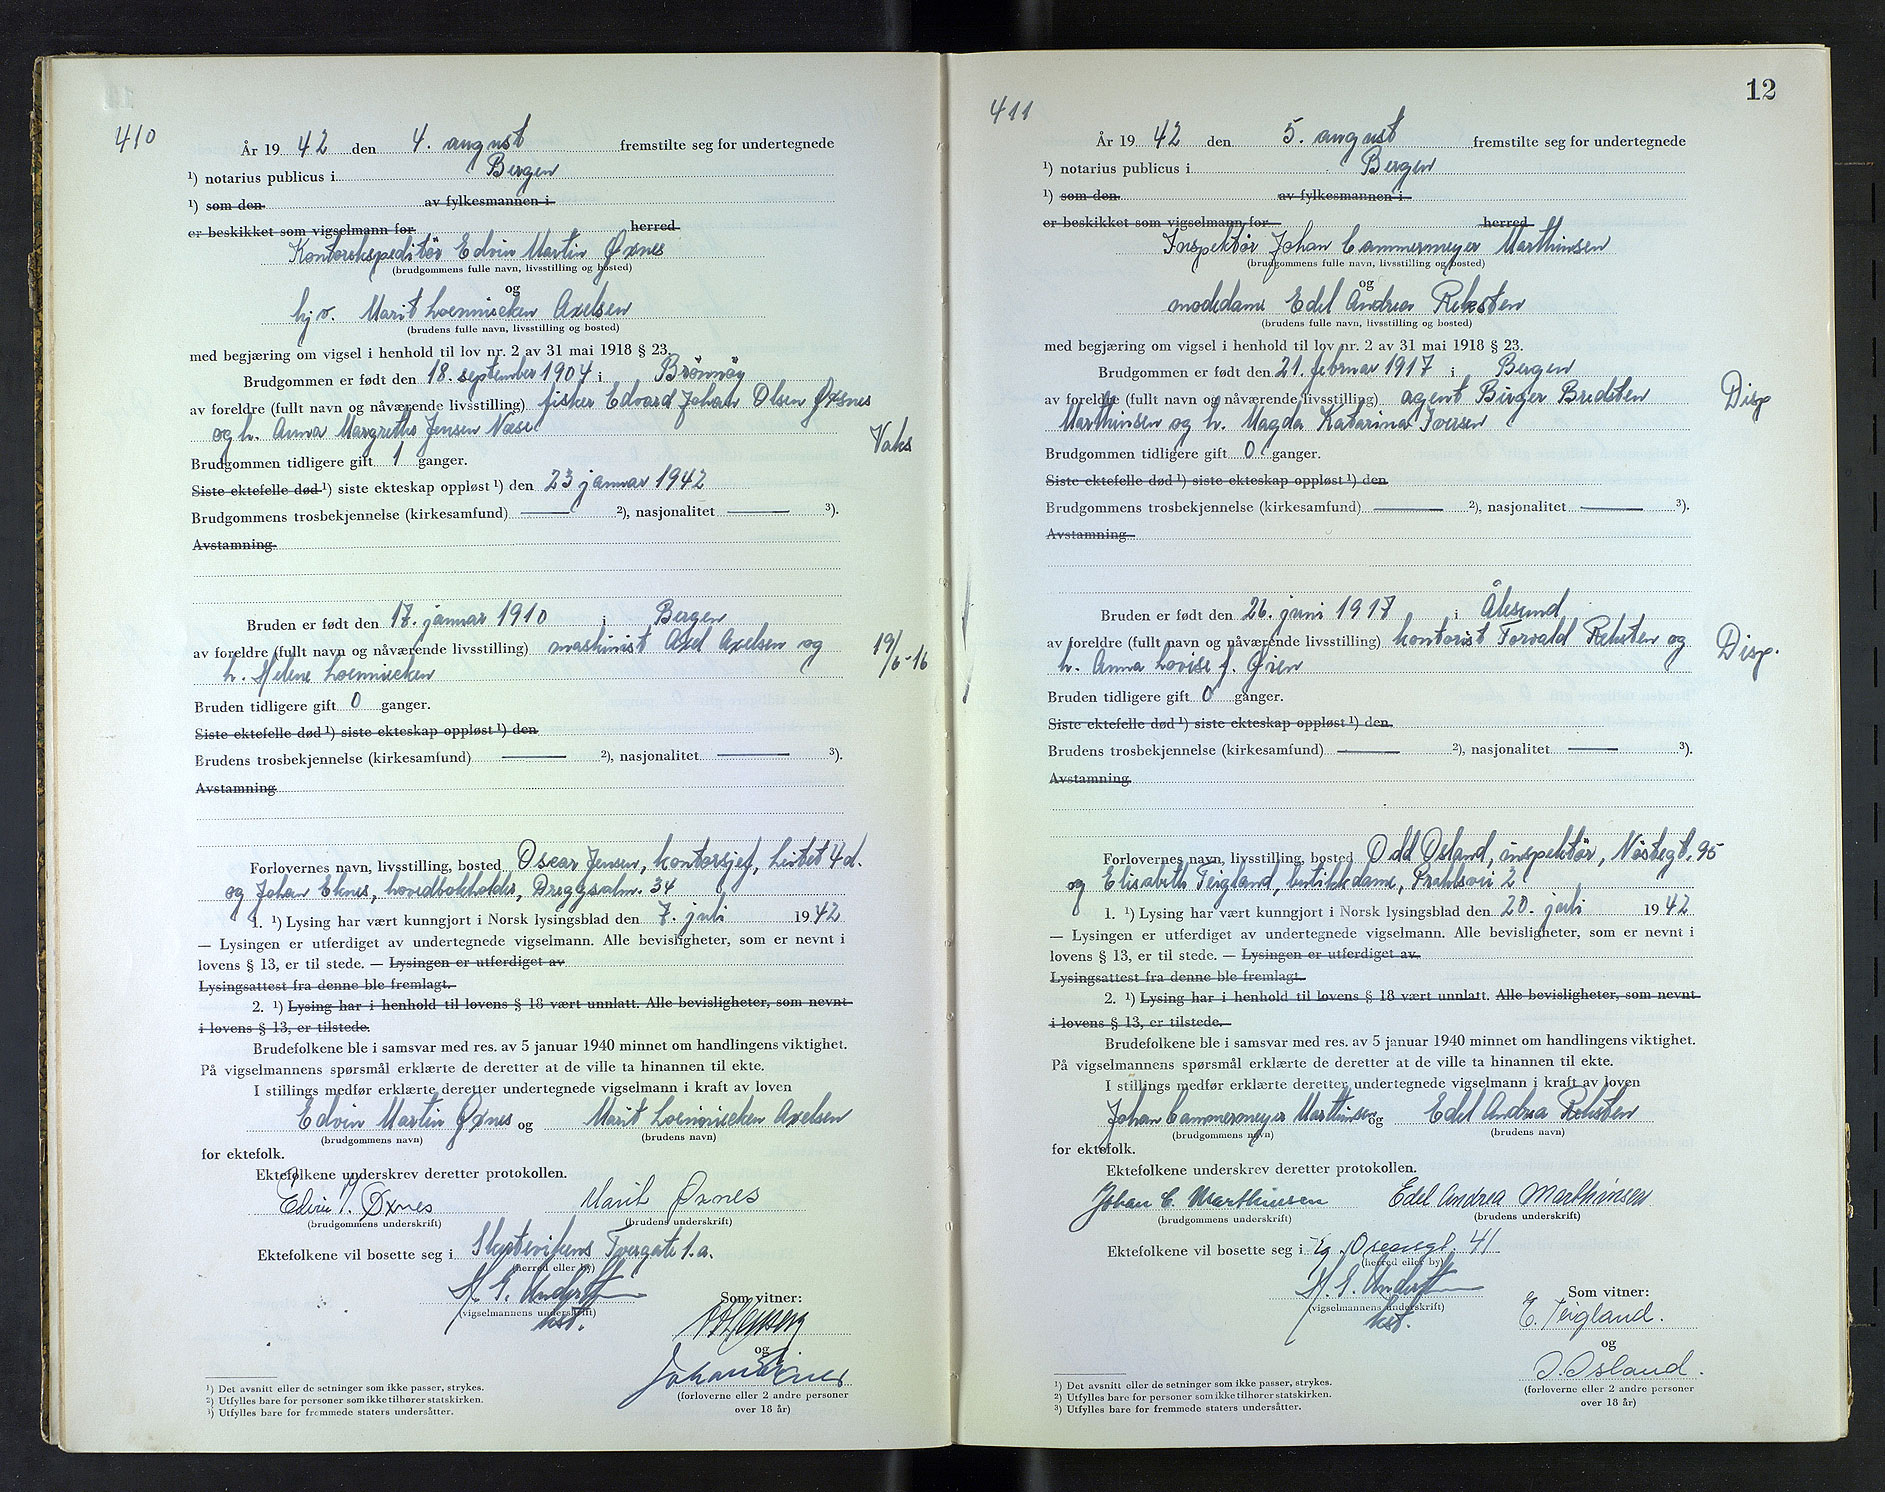 410
År 19 42 den 4. august fremstilte seg for undertegnede
¹) notarius publicus i Bergen
¹) som den av fylkesmannen i
er beskikket som vigselmann for herred
Kontorekspeditör Edvin Martin Øxnes
(brudgommens fulle navn, livsstilling og bosted)
og
hj.v. Marit Loennecken Axelsen
(brudens fulle navn, livsstilling og bosted)
med begjæring om vigsel i henhold til lov nr. 2 av 31 mai 1918 § 23.
Brudgommen er født den 18. september 1904 i Brönnöy
av foreldre (fullt navn og nåværende livsstilling) fisker Edvard Johan Olsen Øxnes
og h. Anna Margrethe Jensen Næse
Vaks
Brudgommen tidligere gift 1 ganger.
Siste ektefelle død ¹) siste ekteskap oppløst ¹) den 23 januar 1942
Brudgommens trosbekjennelse (kirkesamfund) — ²), nasjonalitet — ³).
Avstamning
Bruden er født den 17. januar 1910 i Bergen
av foreldre (fullt navn og nåværende livsstilling) maskinist Axel Axelsen og
h. Helene Loennecken
19/6-16
Bruden tidligere gift 0 ganger.
Siste ektefelle død ¹) siste ekteskap oppløst ¹) den
Brudens trosbekjennelse (kirkesamfund) — ²), nasjonalitet — ³).
Avstamning
Forlovernes navn, livsstilling, bosted Oscar Jensen, kontorsjef, Leitet 4 d.
og Johan Eknes, hovedbokholder, Dreggsalm. 34
1. ¹) Lysing har vært kunngjort i Norsk lysingsblad den 7. juli 19 42
— Lysingen er utferdiget av undertegnede vigselmann. Alle bevisligheter, som er nevnt i
lovens § 13, er til stede. — Lysingen er utferdiget av
Lysingsattest fra denne ble fremlagt.
2. ¹) Lysing har i henhold til lovens § 18 vært unnlatt. Alle bevisligheter, som nevnt
i lovens § 13, er tilstede.
Brudefolkene ble i samsvar med res. av 5 januar 1940 minnet om handlingens viktighet.
På vigselmannens spørsmål erklærte de deretter at de ville ta hinannen til ekte.
I stillings medfør erklærte deretter undertegnede vigselmann i kraft av loven
Edvin Martin Øxnes og Marit Loennecken Axelsen
(brudgommens navn) (brudens navn)
for ektefolk.
Ektefolkene underskrev deretter protokollen.
Edvin M. Øxnes Marit Øxnes
(brudgommens underskrift) (brudens underskrift)
Ektefolkene vil bosette seg i Skutevikens Tvergate 1.a.
(herred eller by)
(vigselmannens underskrift)
kst.
Som vitner:
og
Johan Eknes
(forloverne eller 2 andre personer
over 18 år)
¹) Det avsnitt eller de setninger som ikke passer, strykes.
²) Utfylles bare for personer som ikke tilhører statskirken.
³) Utfylles bare for fremmede staters undersåtter.
12
411
År 19 42 den 5. august fremstilte seg for undertegnede
¹) notarius publicus i Bergen
¹) som den av fylkesmannen i
er beskikket som vigselmann for herred
Inspektör Johan Cammermeyer Marthinsen
(brudgommens fulle navn, livsstilling og bosted)
og
motedame Edel Andrea Reksten
(brudens fulle navn, livsstilling og bosted)
med begjæring om vigsel i henhold til lov nr. 2 av 31 mai 1918 § 23.
Brudgommen er født den 21. februar 1917 i Bergen
av foreldre (fullt navn og nåværende livsstilling) agent Birger Bredsten
Marthinsen og h. Magda Katarina Iversen
Disp
Brudgommen tidligere gift 0 ganger.
Siste ektefelle død ¹) siste ekteskap oppløst ¹) den
Brudgommens trosbekjennelse (kirkesamfund) — ²), nasjonalitet — ³).
Avstamning
Bruden er født den 26. juni 1917 i Ålesund
av foreldre (fullt navn og nåværende livsstilling) kontorist Torvald Reksten og
h. Anna Lovise f. Øien
Disp.
Bruden tidligere gift 0 ganger.
Siste ektefelle død ¹) siste ekteskap oppløst ¹) den
Brudens trosbekjennelse (kirkesamfund) — ²), nasjonalitet — ³).
Avstamning
Forlovernes navn, livsstilling, bosted Odd Osland, inspektör, Nöstegt. 95
og Elisabeth Teigland, butikkdame, Prahlsvei 2
1. ¹) Lysing har vært kunngjort i Norsk lysingsblad den 20. juli 19 42
— Lysingen er utferdiget av undertegnede vigselmann. Alle bevisligheter, som er nevnt i
lovens § 13, er til stede. — Lysingen er utferdiget av
Lysingsattest fra denne ble fremlagt.
2. ¹) Lysing har i henhold til lovens § 18 vært unnlatt. Alle bevisligheter, som nevnt
i lovens § 13, er tilstede.
Brudefolkene ble i samsvar med res. av 5 januar 1940 minnet om handlingens viktighet.
På vigselmannens spørsmål erklærte de deretter at de ville ta hinannen til ekte.
I stillings medfør erklærte deretter undertegnede vigselmann i kraft av loven
Johan Cammermeyer Marthinsen og Edel Andrea Reksten
(brudgommens navn) (brudens navn)
for ektefolk.
Ektefolkene underskrev deretter protokollen.
Johan C. Marthinsen Edel Andrea Marthinsen
(brudgommens underskrift) (brudens underskrift)
Ektefolkene vil bosette seg i 41
(herred eller by)
(vigselmannens underskrift)
kst.
Som vitner:
E. Teigland.
og
O. Osland.
(forloverne eller 2 andre personer
over 18 år)
¹) Det avsnitt eller de setninger som ikke passer, strykes.
²) Utfylles bare for personer som ikke tilhører statskirken.
³) Utfylles bare for fremmede staters undersåtter.